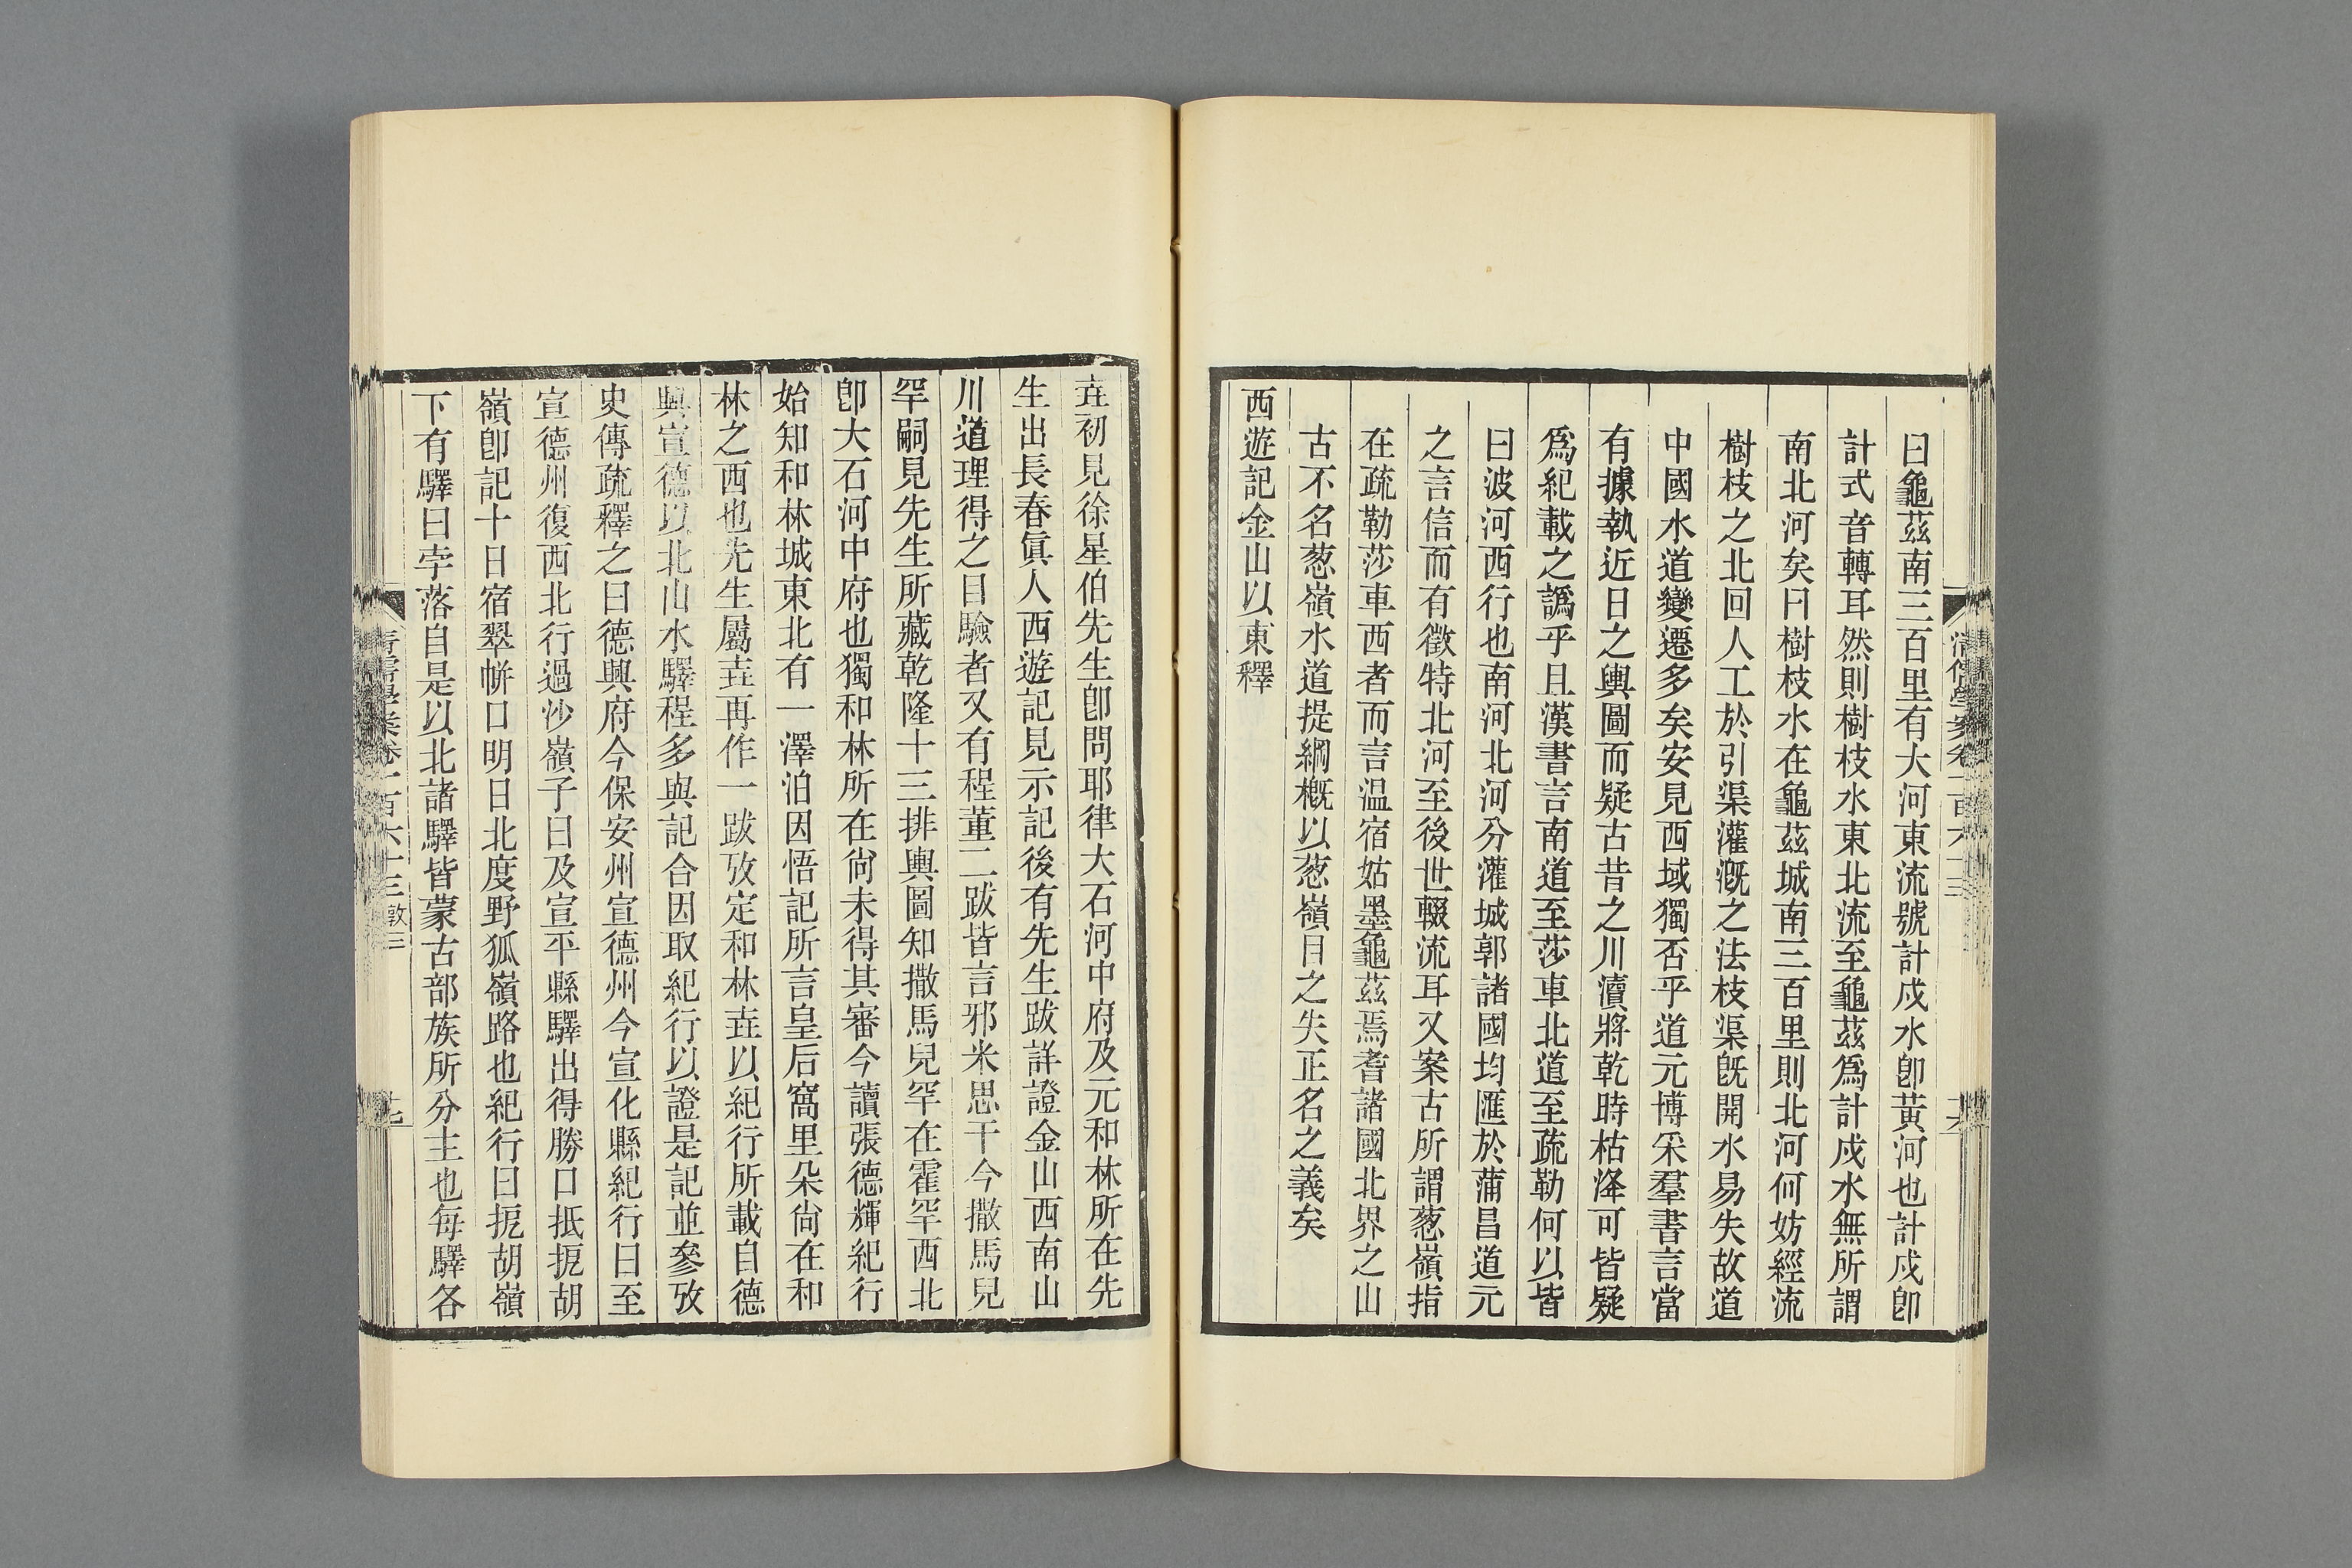 曰龜茲南三百里有大河東流號計戍水卽黃河也計戍卽
計式音轉耳然則樹枝水東北流至龜茲爲計戍水無所謂
南北河矣曰樹枝水在龜茲城南三百里則北河何妨經流
樹枝之北回人工於引渠灌漑之法枝渠旣開水易失故道
中國水道變遷多矣安見西域獨否乎道元博采羣書言當
有據執近日之輿圖而疑古昔之川瀆將乾時枯洚可皆疑
爲紀載之譌乎且漢書言南道至莎車北道至疏勒何以皆
曰波河西行也南河北河分灌城郭諸國均匯於蒲昌道元
之言信而有徵特北河至後世輟流耳又案古所謂葱嶺指
在疏勒莎車西者而言温宿姑墨龜茲焉耆諸國北界之山
古不名葱嶺水道提綱槪以葱嶺目之失正名之義矣
西遊記金山以東釋
垚初見徐星伯先生卽問耶律大石河中府及元和林所在先
生出長春眞人西遊記見示記後有先生跋詳證金山西南山
川道理得之目驗者又有程董二跋皆言邪米思干今撒馬兒
罕嗣見先生所藏乾隆十三排輿圖知撒馬兒罕在霍罕西北
卽大石河中府也獨和林所在尙未得其審今讀張德輝紀行
始知和林城東北有一澤泊因悟記所言皇后窩里朵尙在和
林之西也先生屬垚再作一跋攷定和林垚以紀行所載自德
興宣德以北山水驛程多與記合因取紀行以證是記並參攷
史傳疏釋之曰德興府今保安州宣德州今宣化縣紀行曰至
宣德州復西北行過沙嶺子曰及宣平縣驛出得勝口抵扼胡
嶺卽記十日宿翠帡口明日北度野狐嶺路也紀行曰扼胡嶺
下有驛曰孛落自是以北諸驛皆蒙古部族所分主也每驛各